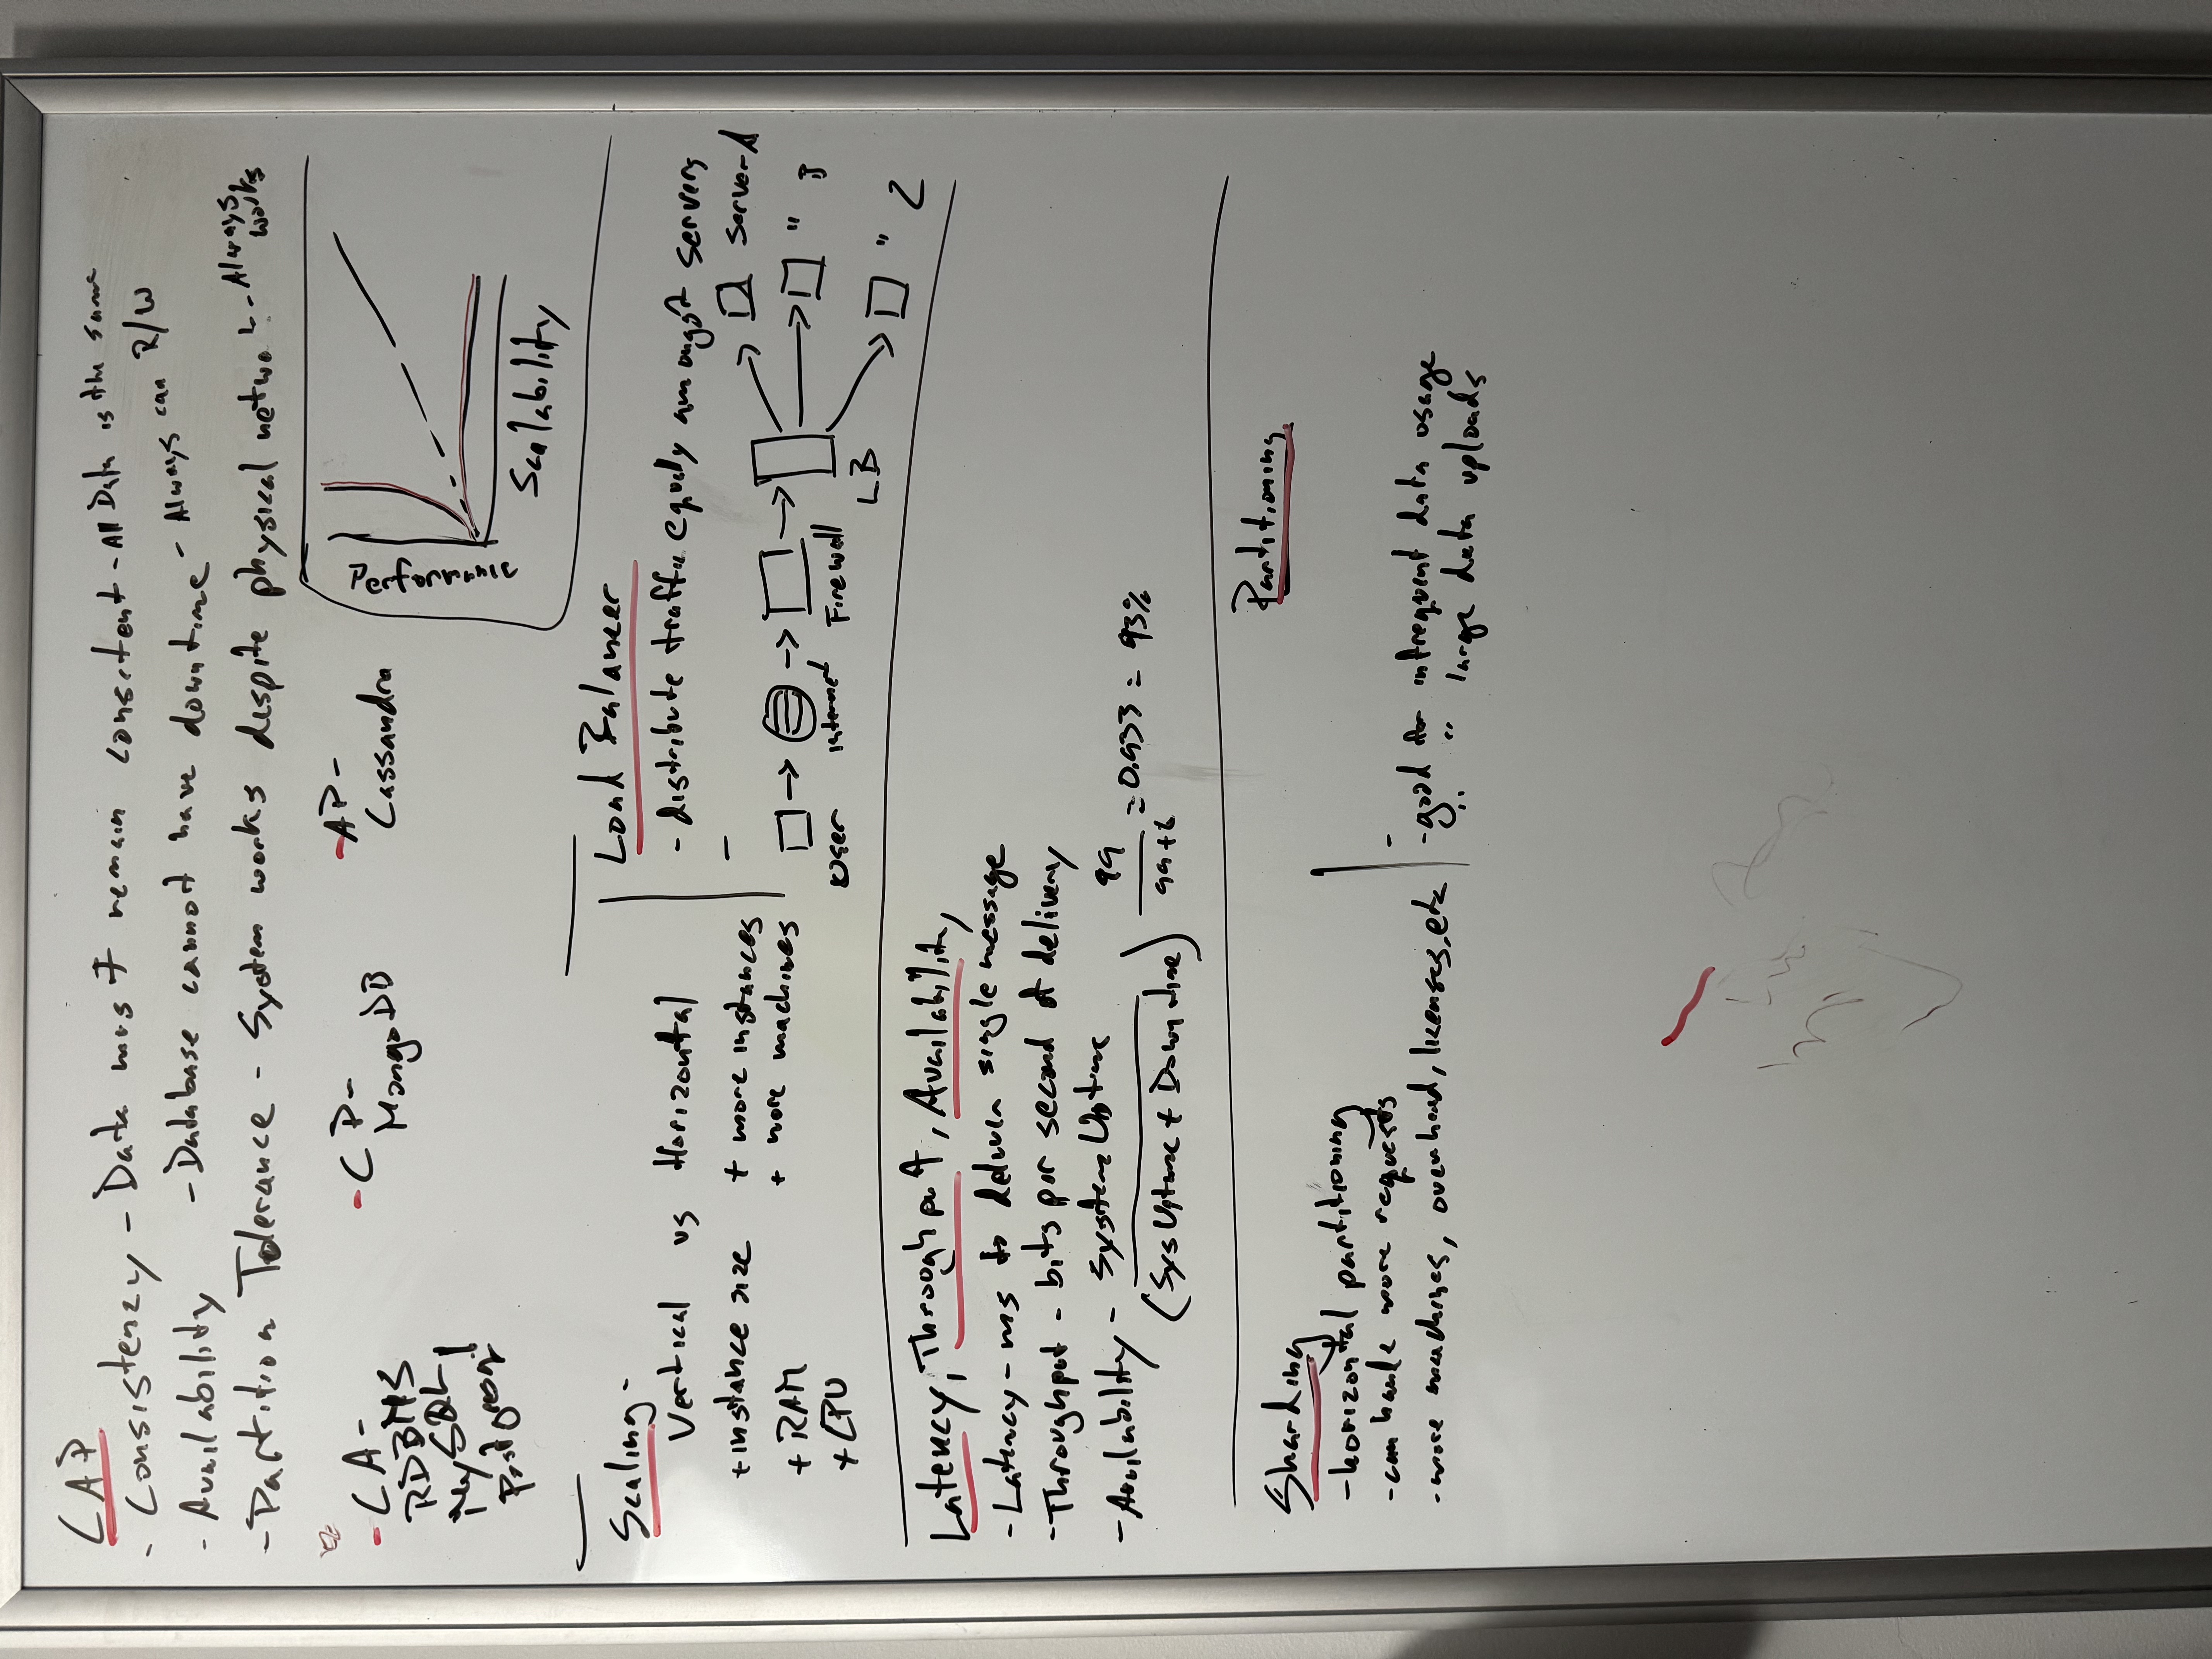 CAP
- Consistency - Data must remain consitent - All Data is the same
- Availability - Database cannot have downtime - Always can R/W
- Partition Tolerance - System works despite physical network - Always works
- CA -
RDBMS
MySQL
Postgresql
- CP -
MongoDB
- AP -
Cassandra
Performance
Scalability
Scaling -
Vertical vs Horizontal
+ instance size
+ RAM
+ CPU
+ more instances
+ more machines
Load Balancer
- distribute traffic equally amongst servers
-
User
internet
Firewall
LB
Server A
" B
" C
Latency, Throughput, Availability
- Latency - ms to deliver single message
- Throughput - bits per second of delivery
- Availability - System Uptime
(Sys Uptime + Down time)
99
99+ = 0.933 = 93%
Sharding
- horizontal partitioning
- can hanle more requests
- more machines, overhead, licenses, etc
Partitioning
-
- good for infrequent data usage
" " large data uploads